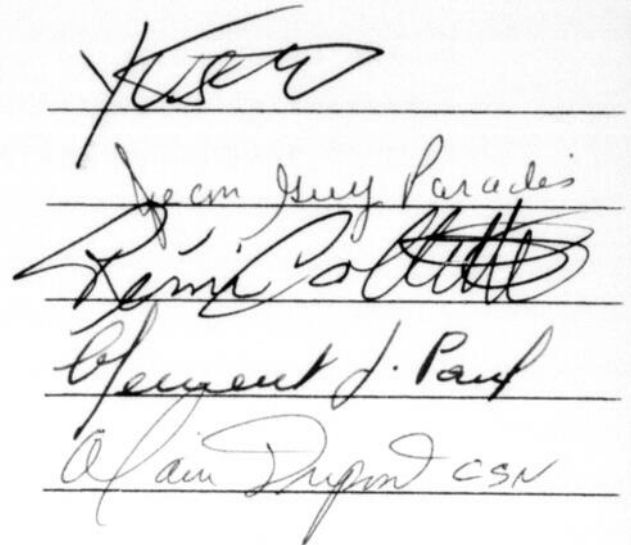 Jean Guy Paradis
Rémi Collette
Clément J. Paul
Alain Dupont CSN